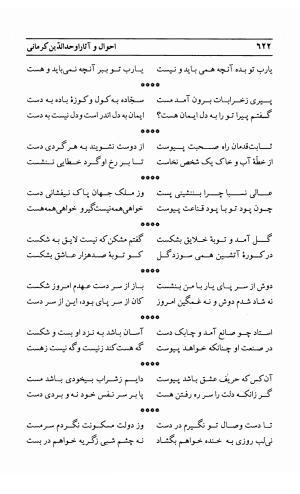 ۶۲۲ احوال و آثار اوحدالدّین کرمانی
یارب تو بده آنچه همی باید و نیست یارب تو ببر آنچه نمی‌باید و هست
****
پیری زخرابات برون آمد مست سجّاده به کول و کوزهٔ باده به دست
گفتم پیرا تو را به دل ایمان هست؟ ایمان به دل اندر است و دل نیست به دست
****
ثابت‌قدمان راه صحبت پیوست از دوست نشویند به هر گردی دست
از خطّهٔ آب و خاک یک شخص نخاست تا بر رخ او گرد خطایی ننشست
****
عالی نسبا چرا بننشینی پست وز ملک جهان پاک نیفشانی دست
چون پود تو با پود قناعت پیوست خواهی‌همه‌نیست‌گیرو خواهی‌همه‌هست
****
گل آمد و توبهٔ خلایق بشکست گفتم مشکن که نیست لایق به شکست
در کورهٔ آتشین همی سوزد گل کو توبهٔ صدهزار عاشق بشکست
****
دوش از سر پای یار با من بنشست باز از سر دست عهدم امروز شکست
نه شاد شدم دوش و نه غمگین امروز کان از سر پای بود، این از سر دست
****
استاد چو صانع آمد و چابک دست آسان باشد به نزد او بست و شکست
در صنعت او چنانکه خواهد پیوست گه هست‌کند زنیست و گه نیست زهست
****
آن‌کس که حریف عشق باشد پیوست دایم زشراب بیخودی باشد مست
گر زانکه دلت را سر ره رفتن هست پا بر سر نفس خود نه و بردی دست
****
تا دست وصال تو نگیرم در دست وز دولت مسکونت نگردم سرمست
نی‌لب روزی به خنده خواهم بگشاد نه چشم شبی زگریه خواهم در بست